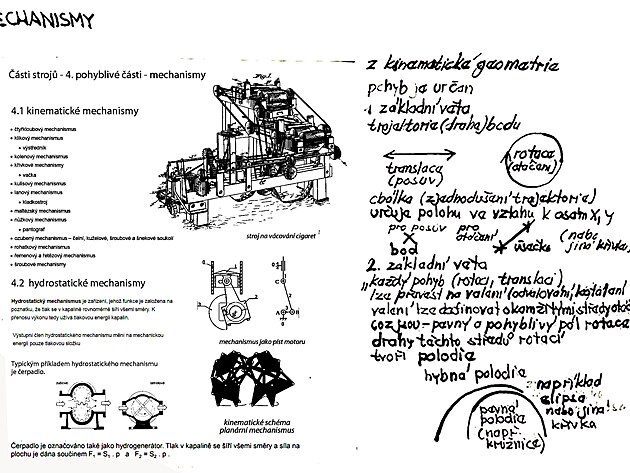 ECHANISMY
Části strojů - 4. pohyblivé části - mechanismy
4.1 kinematické mechanismy
• čtyřkloubový mechanismus
• klikový mechanismus
• výstředník
• kolenový mechanismus
• křivkové mechanismy
• vačka
• kulisový mechanismus
• lanový mechanismus
• kladkostroj
• maltézský mechanismus
• nůžkový mechanismus
• pantograf
• ozubený mechanismus – čelní, kuželové, šroubové a šnekové soukolí
• rohatkový mechanismus
• řemenový a řetězový mechanismus
• šroubové mechanismy
stroj na vácování cigaret
4.2 hydrostatické mechanismy
Hydrostatický mechanismus je zařízení, jehož funkce je založena na
poznatku, že tlak se v kapalině rovnoměrně šíří všemi směry. K
přenosu výkonu tedy užívá tlakovou energii kapalin.
Výstupní člen hydrostatického mechanismu mění na mechanickou
energii pouze tlakovou složku
Typickým příkladem hydrostatického mechanismu
je čerpadlo.
mechanismus jako píst motoru
kinematické schéma
planární mechanismus
Čerpadlo je označováno také jako hydrogenerátor. Tlak v kapalině se šíří všemi směry a síla na
plochu je dána součinem F₁ = S₁ . p a F₂ = S₂ . p .
z kinematické geometrie
pohyb je určen
1 základní věta
trajektorie (dráha) bodu
translace
(posuv)
rotace
(otáčení)
obálka (zjednodušení trajektorie)
určuje polohu ve vztahu k osám X, y
pro posuv pro otáčení
bod úsečka (nebo jiná křivka)
2. základní věta
„každý pohyb (rotaci, translaci)
lze převést na valení (odvalování, kotálení)
valení lze definovat okamžitými středy otáč
což jsou – pevný a pohyblivý pól rotace
dráhy těchto středů rotací
tvoří polodia
hybná polodie
například
elipsa
nebo jiná
křivka
pevná
polodie
(např.
kružnice)